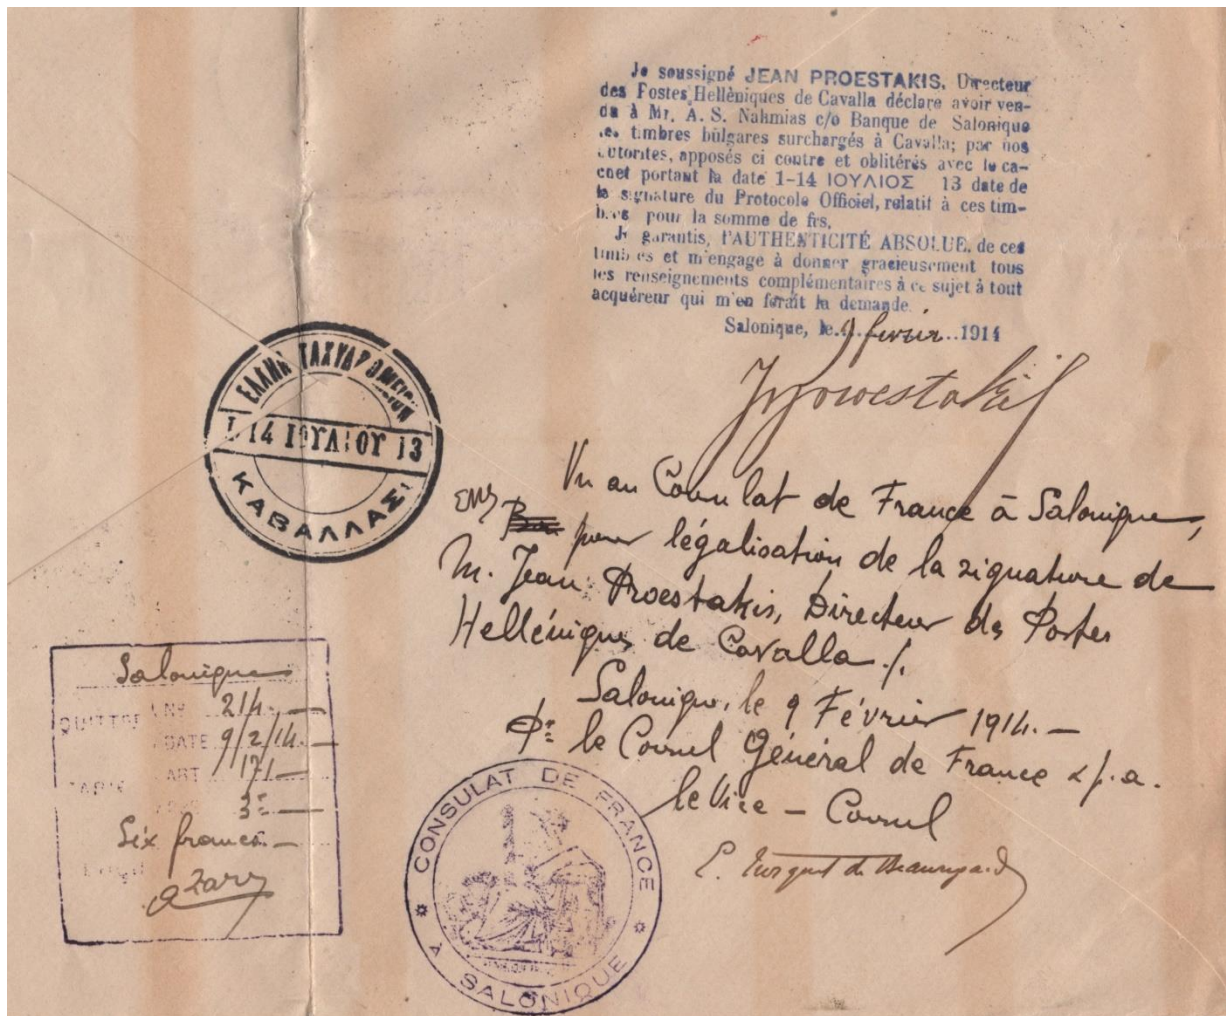 Je soussigné JEAN PROESTAKIS. Directeur
des Postes Hellèniques de Cavalla déclare avoir ven-
du à Mr. A. S. Nahmias c/o Banque de Salonique
les timbres bulgares surchargés à Cavalla; par nos
autorites, apposés ci contre et oblitérés avec le ca-
chet portant la date 1-14 ΙΟΥΛΙΟΣ 13 date de
la signature du Protocole Officiel, relatif à ces tim-
bres pour la somme de frs.
Je garantis, l'AUTHENTICITÉ ABSOLUE, de ces
timbres et m'engage à donner gracieusement tous
les renseignements complémentaires à ce sujet à tout
acquéreur qui m'en ferait la demande.
Salonique, le 9 fevrier 1914
JProestakis
ΕΛΛΗΝ ΤΑΧΥΔΡΟΜΕΙΟΝ
1-14 ΙΟΥΛΙΟΥ 13
ΚΑΒΑΛΛΑΣ
Vu au Consulat de France à Salonique,
pour légalisation de la signature de
M. Jean Proestakis, Directeur des Postes
Helléniques de Cavalla ./.
Salonique, le 9 Février 1914.—
Pr le Consul Général de France
le Vice – Consul
Salonique
QUITTCE N° 214
DATE 9/2/14.
TARIF ART 171
Six francs
CONSULAT DE FRANCE
À SALONIQUE